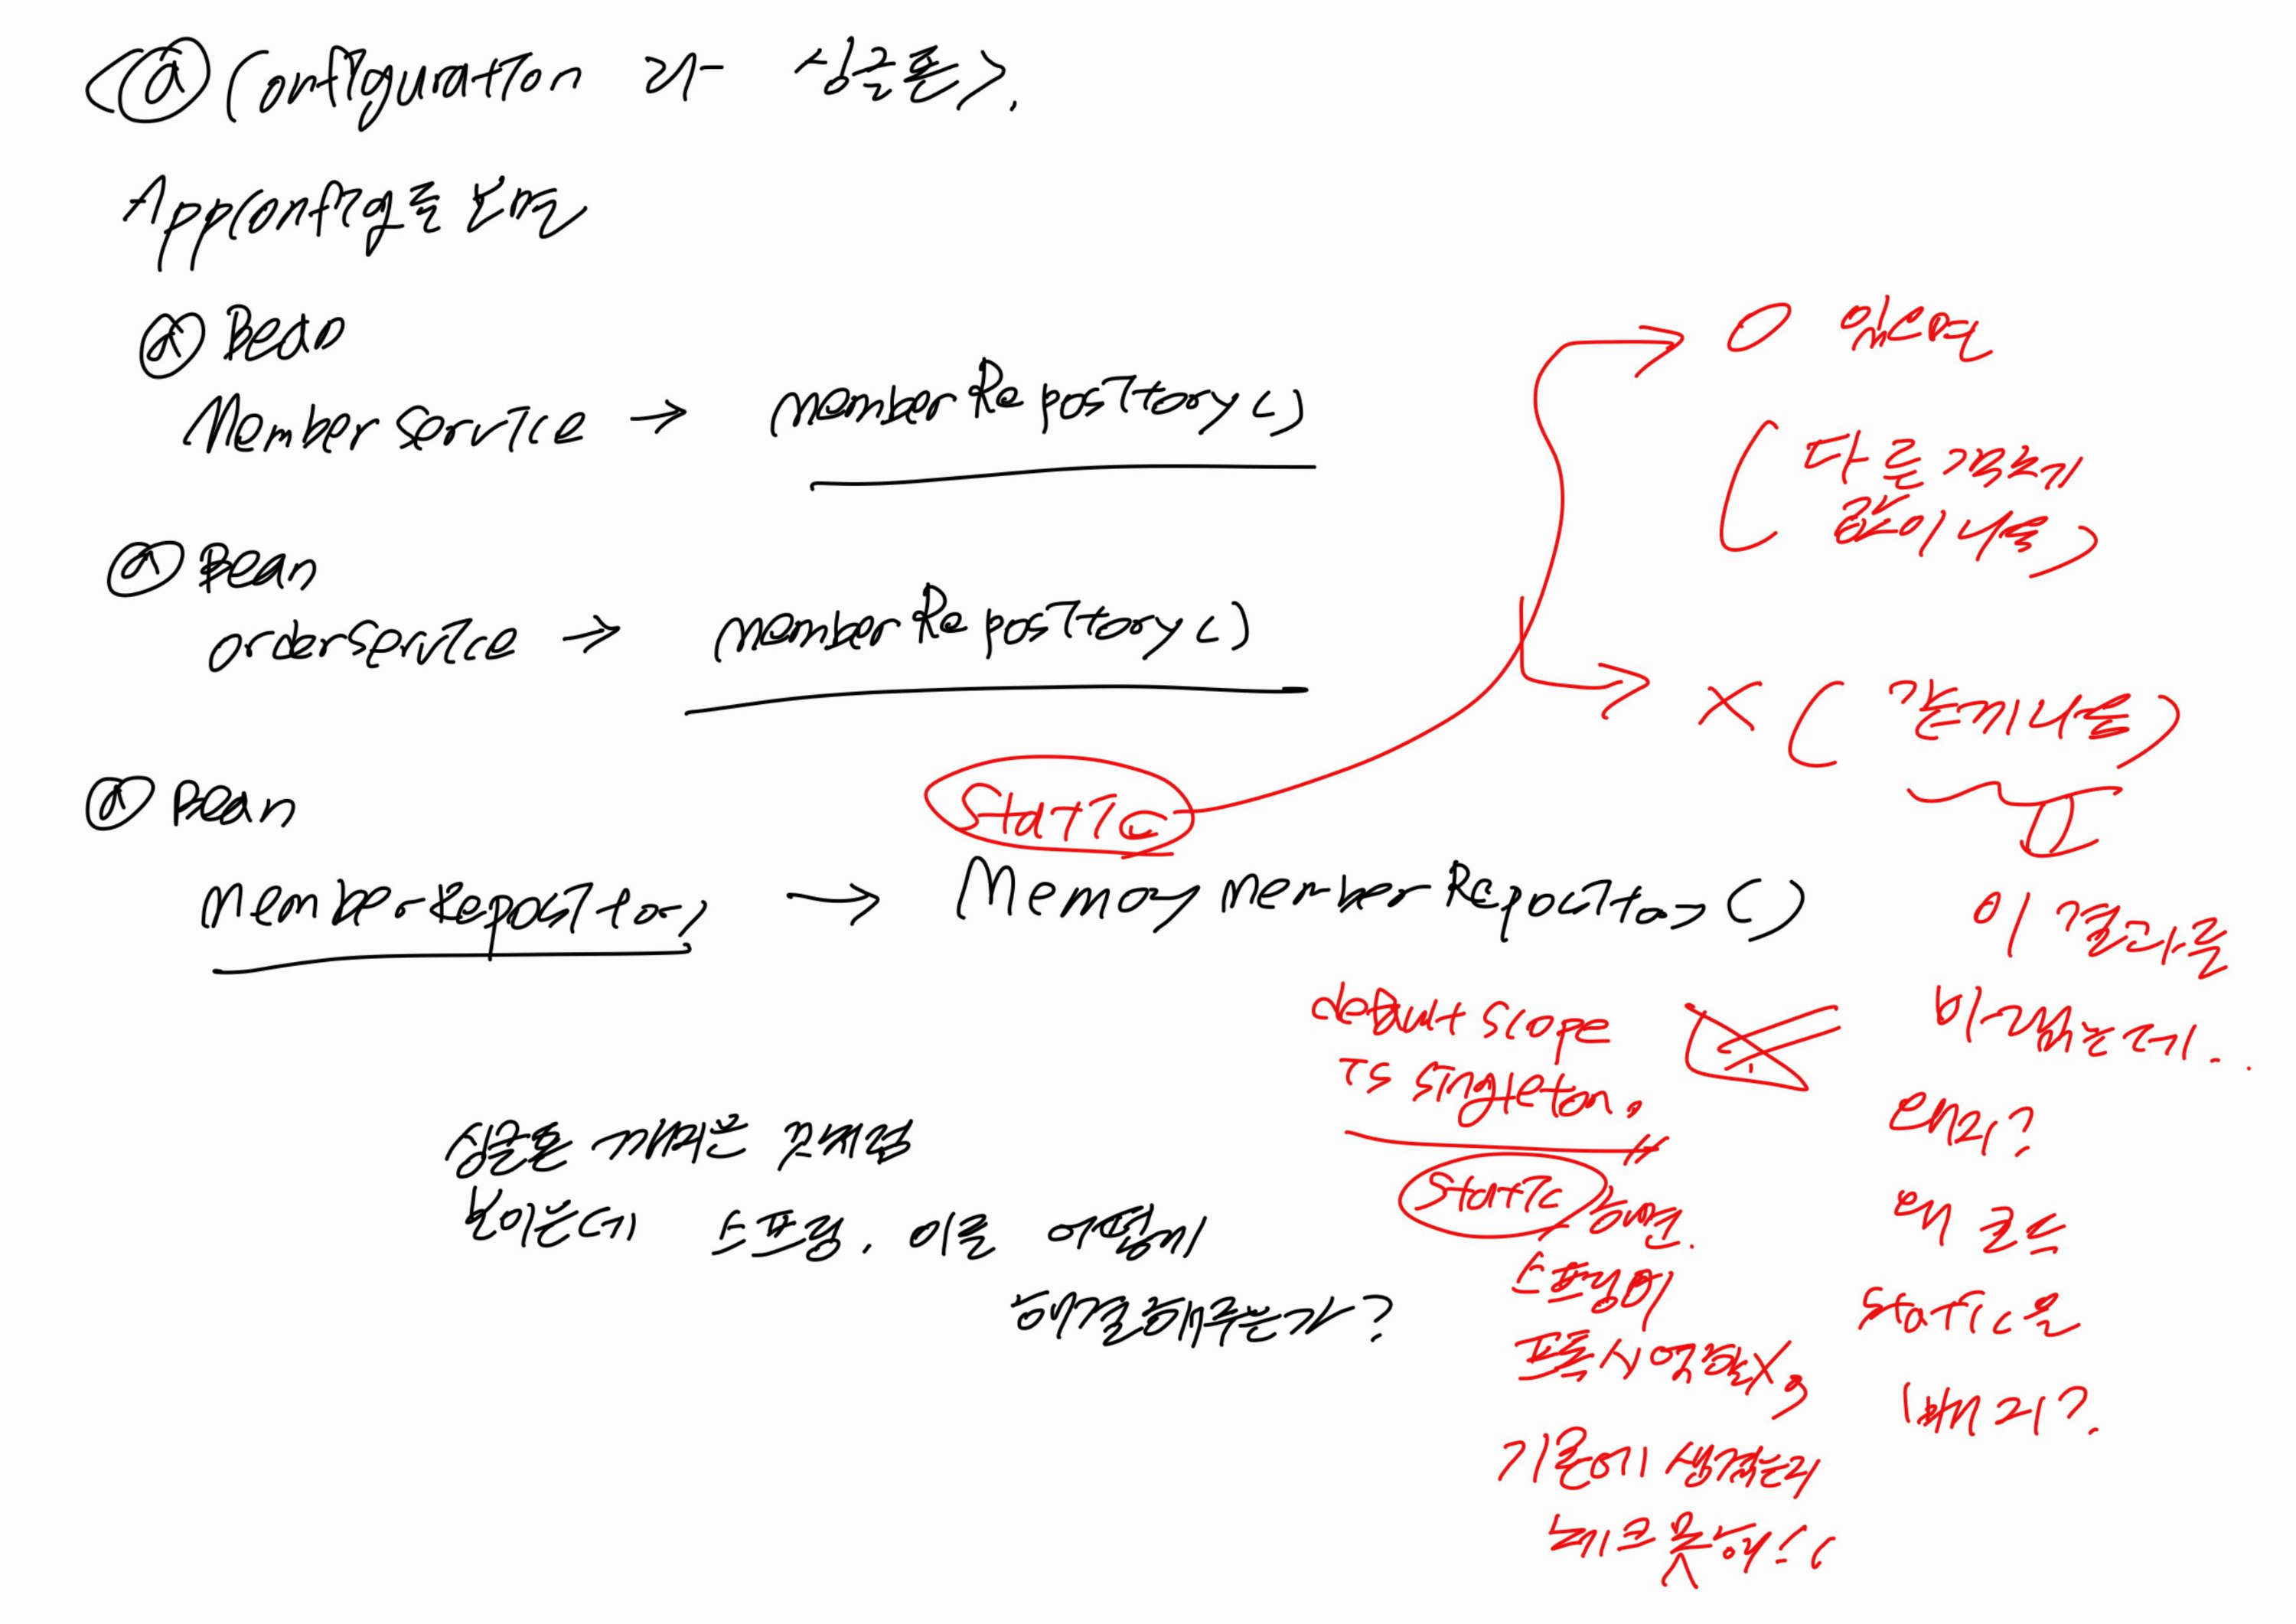 <@Configuration 과 싱글톤>.
AppConfig를 보면
@Bean
MemberService → memberRepository()
@Bean
orderService → memberRepository()
@Bean
memberRepository → MemoryMemberRepository()
싱글톤 깨지는 것처럼
보이는데 스프링. 이를 어떻게
해결해주는가?
static
O 있으면
(다른 객체
같이 나옴)
X (같은게 나옴)
이 결과를
바랬는데..
왜지?
왜 나는
static을
뺐지?
default scope
is singleton.
static 하면.
스프링이
프록시 역할X,
기존에 생겼는지
체크 못해..